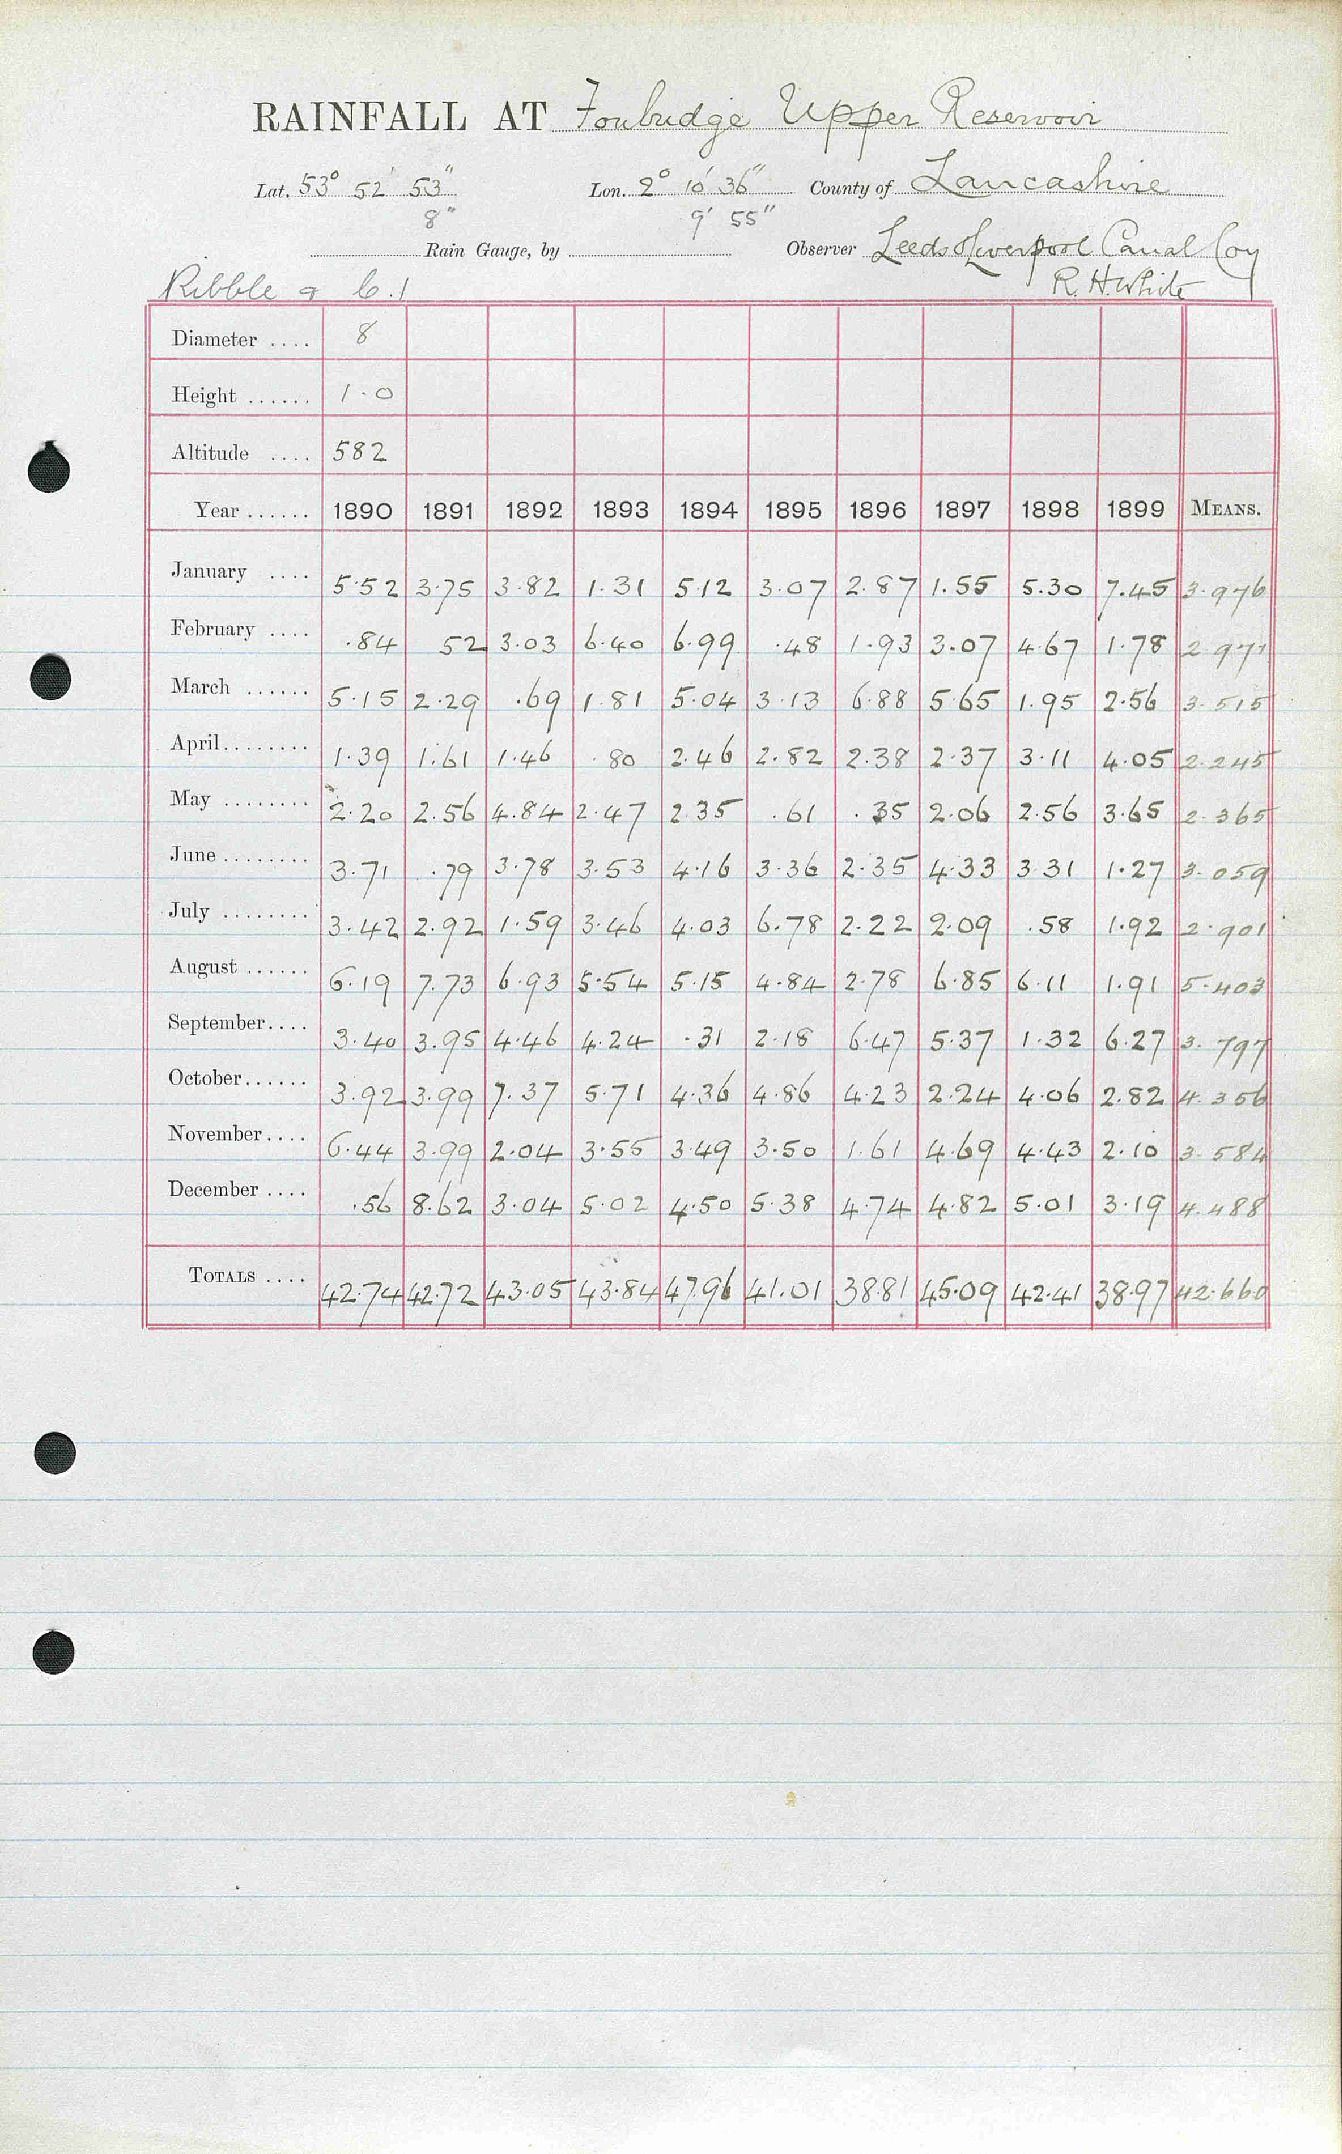 RAINFALL AT Foulridge Upper Reservoir
Lat. 53° 52' 53" Lon. 2° 10' 36" County of Lancashire
8" 9' 55"
Rain Gauge, by Observer Leeds & Liverpool Canal Coy
Ribble & C.1 R. H. White
Diameter .... 8
Height ...... 1.0
Altitude .... 582
Year ...... 1890 1891 1892 1893 1894 1895 1896 1897 1898 1899 MEANS.
January .... 5.52 3.75 3.82 1.31 5.12 3.07 2.87 1.55 5.30 7.45 3.976
February .... .84 52 3.03 6.40 6.99 .48 1.93 3.07 4.67 1.78 2.971
March ...... 5.15 2.29 .69 1.81 5.04 3.13 6.88 5.65 1.95 2.56 3.515
April........ 1.39 1.61 1.46 .80 2.46 2.82 2.38 2.37 3.11 4.05 2.245
May ........ 2.20 2.56 4.84 2.47 2.35 .61 .35 2.06 2.56 3.65 2.365
June ........ 3.71 .79 3.78 3.53 4.16 3.36 2.35 4.33 3.31 1.27 3.059
July ........ 3.42 2.92 1.59 3.46 4.03 6.78 2.22 2.09 .58 1.92 2.901
August ...... 6.19 7.73 6.93 5.54 5.15 4.84 2.78 6.85 6.11 1.91 5.403
September.... 3.40 3.95 4.46 4.24 .31 2.18 6.47 5.37 1.32 6.27 3.797
October...... 3.92 3.99 7.37 5.71 4.36 4.86 4.23 2.24 4.06 2.82 4.356
November.... 6.44 3.99 2.04 3.55 3.49 3.50 1.61 4.69 4.43 2.10 3.584
December .... .56 8.62 3.04 5.02 4.50 5.38 4.74 4.82 5.01 3.19 4.488
TOTALS .... 42.74 42.72 43.05 43.84 47.96 41.01 38.81 45.09 42.41 38.97 42.660